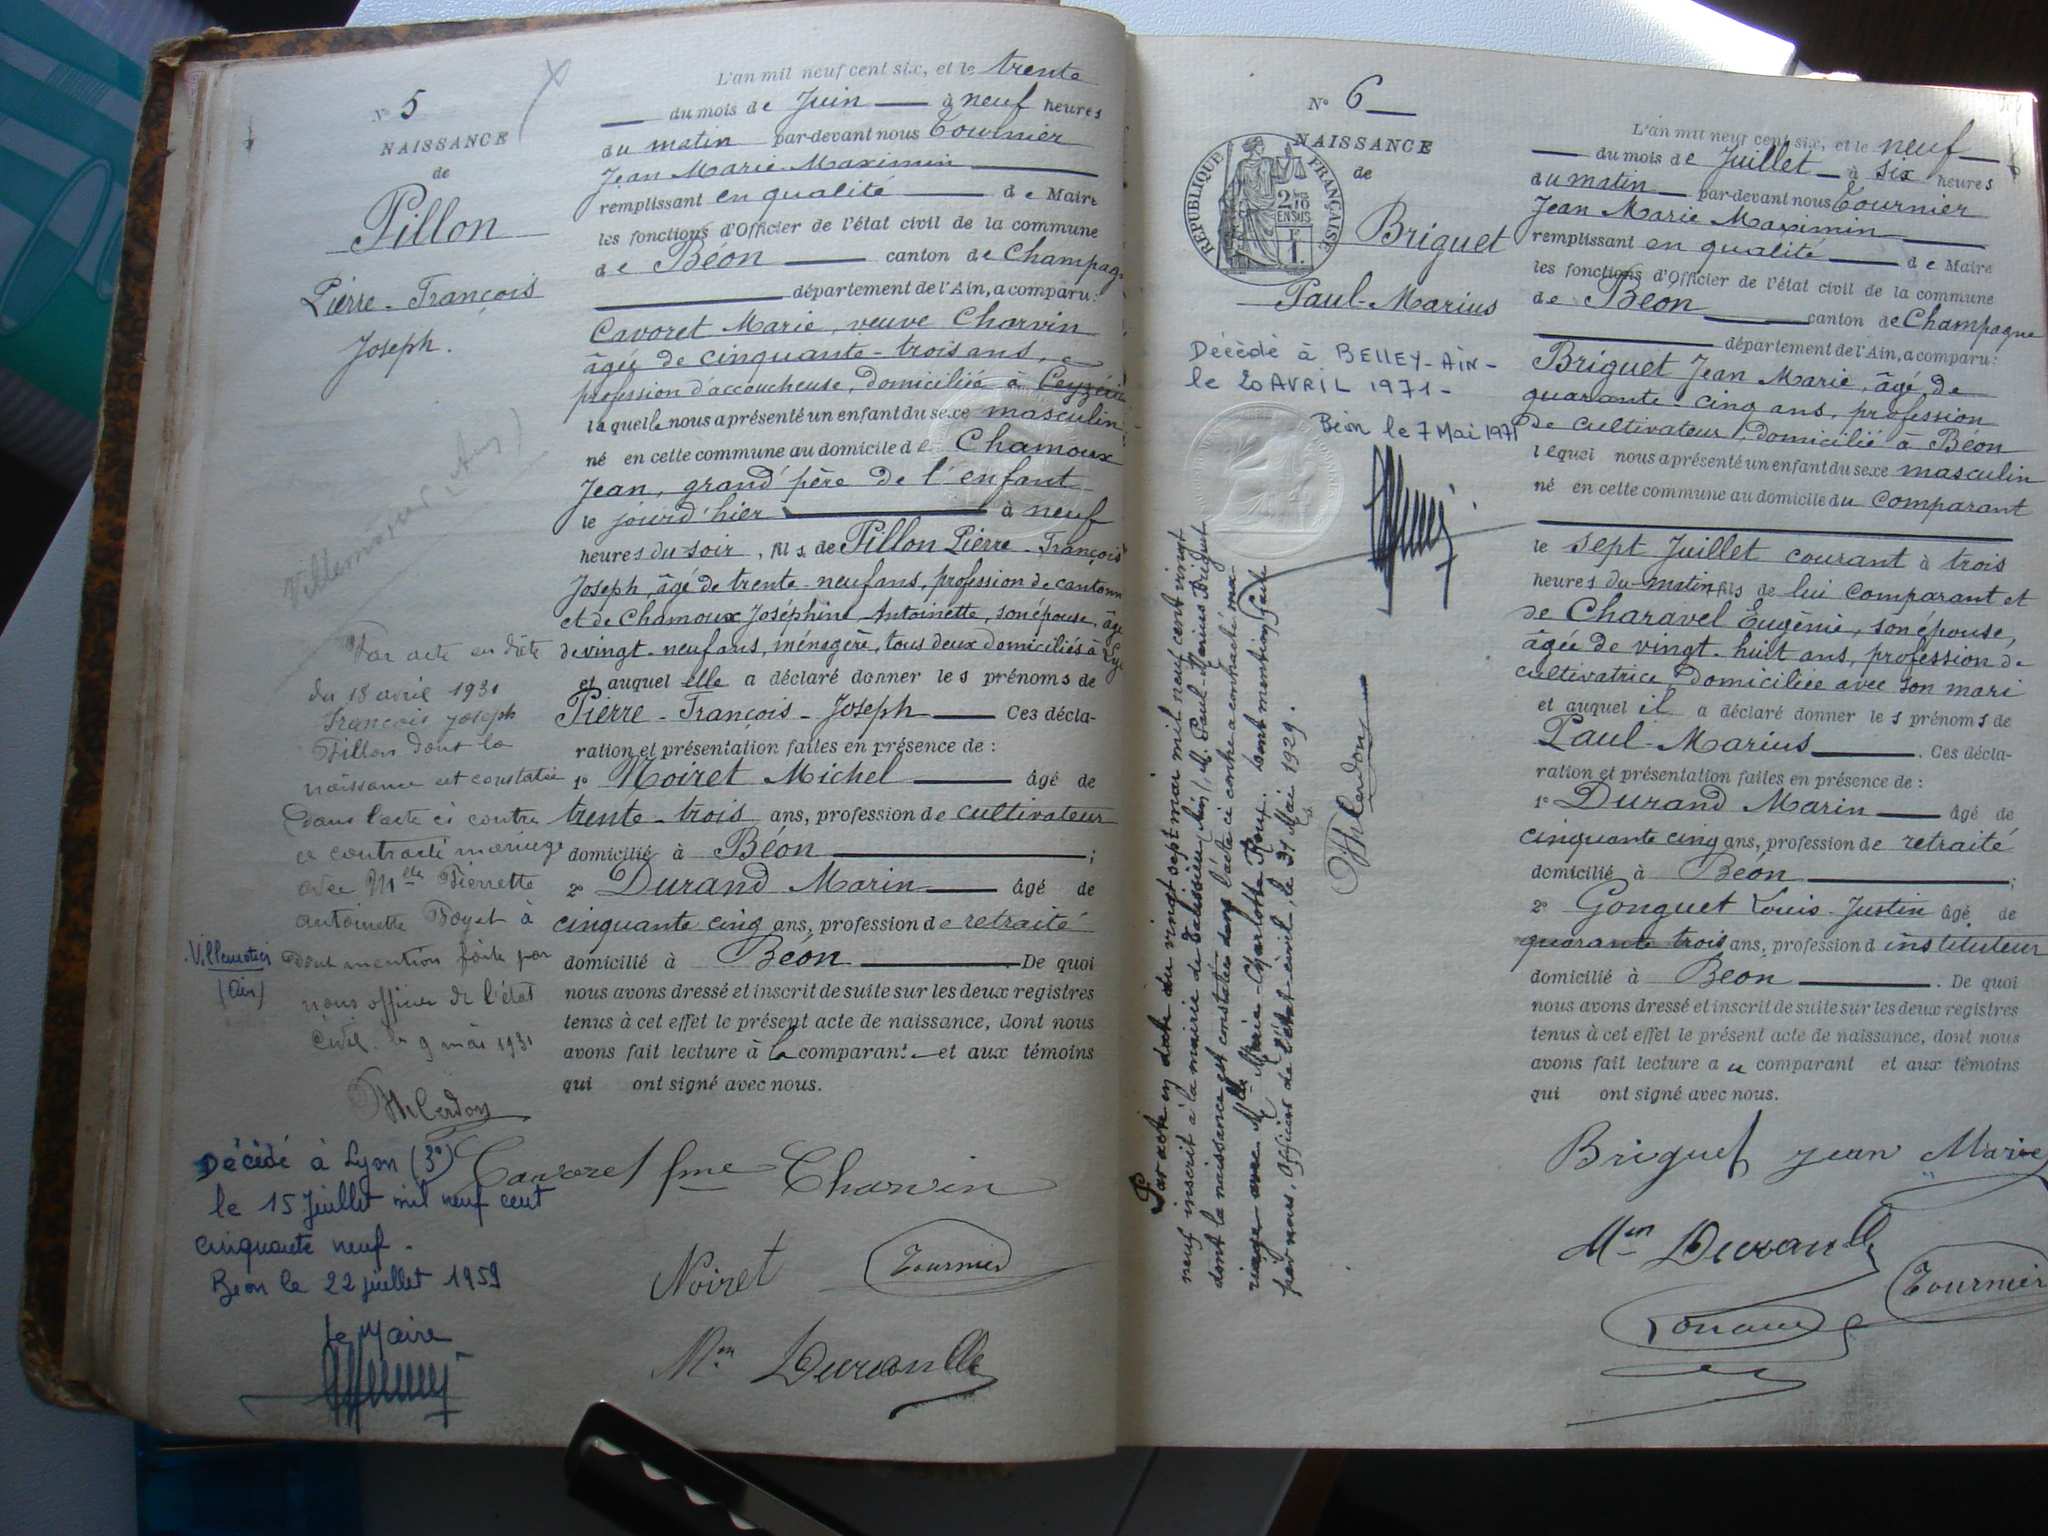 N° 5
NAISSANCE
de
Pillon
Pierre-François
Joseph.
Par acte en date
du 18 avril 1931
François Joseph
Pillon dont la
naissance est constatée
dans l'acte ci contre
a contracté mariage
avec Mlle Pierrette
antoinette à
Villemotier
(Ain)
dont mention faite par
nous officier de l'état
Civil. le 9 mai 1931
Décédé à Lyon (3e)
le 15 Juillet mil neuf cent
cinquante neuf.
Béon le 22 juillet 1959
Le Maire
L'an mil neuf cent six, et le trente
du mois de Juin à neuf heures
du matin par-devant nous Tournier
Jean Marie Maximin
remplissant en qualité de Maire
les fonctions d'Officier de l'état civil de la commune
de Béon canton de Champag
département de l'Ain, a comparu:
Cavoret Marie, veuve Charvin
âgée de cinquante-trois ans,
profession d'accoucheuse, domiciliée à Ceyzéri
laquelle nous a présenté un enfant du sexe masculin
né en cette commune au domicile de Chamoux
Jean, grand'père de l'enfant
le jourd'hier à neuf
heures du soir, fils de Pillon Pierre-François
Joseph, âgé de trente-neuf ans, profession de cantonn
et de Chamoux Joséphine Antoinette, son épouse, âgé
de vingt-neuf ans, ménagère, tous deux domiciliés à Lyo
et auquel elle a déclaré donner les prénoms de
Pierre-François-Joseph Ces décla-
ration et présentation faites en présence de:
1° Noiret Michel âgé de
trente-trois ans, profession de cultivateur
domicilié à Béon;
2° Durand Marin âgé de
cinquante cinq ans, profession de retraité
domicilié à Béon De quoi
nous avons dressé et inscrit de suite sur les deux registres
tenus à cet effet le présent acte de naissance, dont nous
avons fait lecture à la comparante et aux témoins
qui ont signé avec nous.
Cavoret fme Charvin
Noiret Tournier
Min Durand
N° 6
NAISSANCE
de
RÉPUBLIQUE FRANÇAISE
2/10 EN SUS
1F
Briguet
Paul-Marius
Décédé à BELLEY-AIN-
le 20 AVRIL 1971-
Béon le 7 Mai 1971
Par acte en date du vingt sept mai mil neuf cent vingt
neuf inscrit à la mairie de Talissieu (Ain), M. Paul-Marius Briguet
dont la naissance est constatée dans l'acte ci contre a contracté ma-
riage avec Mlle Marie Charlotte Roux. Dont mention faite
par nous, Officier de l'état civil, le 31 Mai 1929.
L'an mil neuf cent six, et le neuf
du mois de Juillet à six heures
du matin par-devant nous Tournier
Jean Marie Maximin
remplissant en qualité de Maire
les fonctions d'Officier de l'état civil de la commune
de Béon canton de Champagne
département de l'Ain, a comparu:
Briguet Jean Marie, âgé de
quarante-cinq ans, profession
de cultivateur, domicilié à Béon
lequel nous a présenté un enfant du sexe masculin
né en cette commune au domicile du comparant
le sept Juillet courant à trois
heures du matin fils de lui comparant et
de Charavel Eugénie, son épouse,
âgée de vingt-huit ans, profession de
cultivatrice, domiciliée avec son mari
et auquel il a déclaré donner les prénoms de
Paul-Marius. Ces décla-
ration et présentation faites en présence de:
1° Durand Marin âgé de
cinquante cinq ans, profession de retraité
domicilié à Béon;
2° Gonguet Louis-Justin âgé de
quarante trois ans, profession d instituteur
domicilié à Béon. De quoi
nous avons dressé et inscrit de suite sur les deux registres
tenus à cet effet le présent acte de naissance, dont nous
avons fait lecture au comparant et aux témoins
qui ont signé avec nous.
Briguet Jean Marie
Min Durand
Tournier